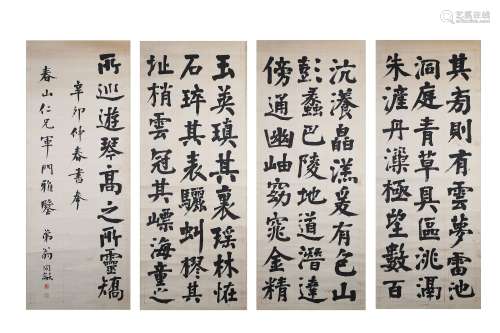 其旁則有雲夢雷池
洞庭青草具區洮滆
朱滻丹漅極望數百
沆瀁皛溔爰有包山
彭蠡巴陵地道潛逵
傍通幽岫窈窕金精
玉英瑱其裏瑤林恠
石琗其表驪虯樛其
址梢雲冠其嶛海童之
所巡遊琴高之所靈矯
辛卯仲春書奉
春山仁兄軍門雅鑒 弟翁同龢